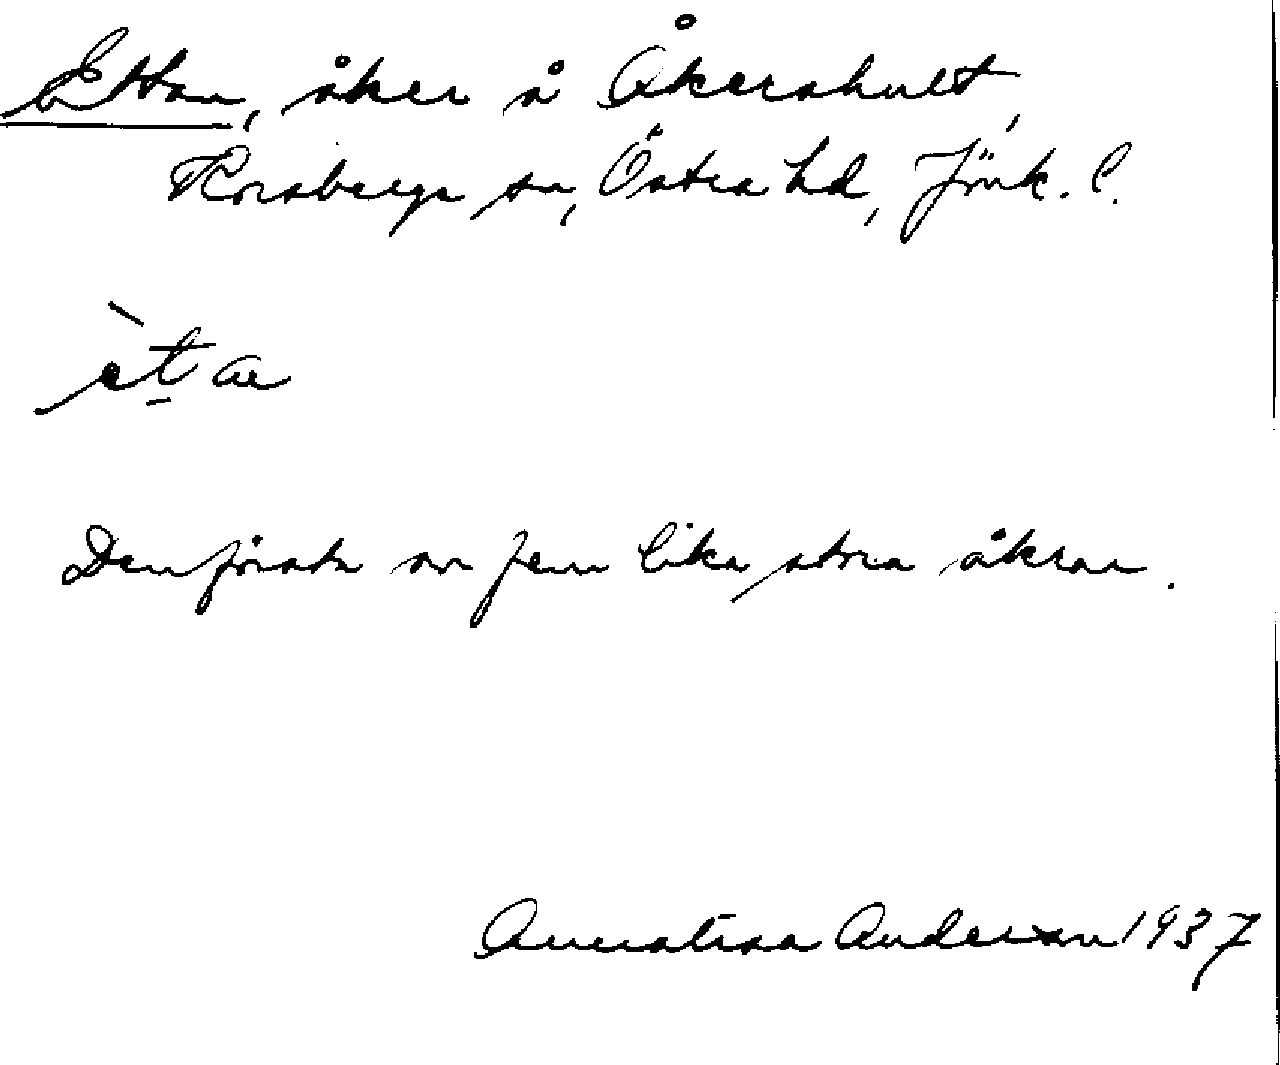 Ettan, åker å Åkershult,
Korsberga sn, Östra hd, Jönk. l.
ètan
Den första av fem lika stora åkrar.
Andersson 1937